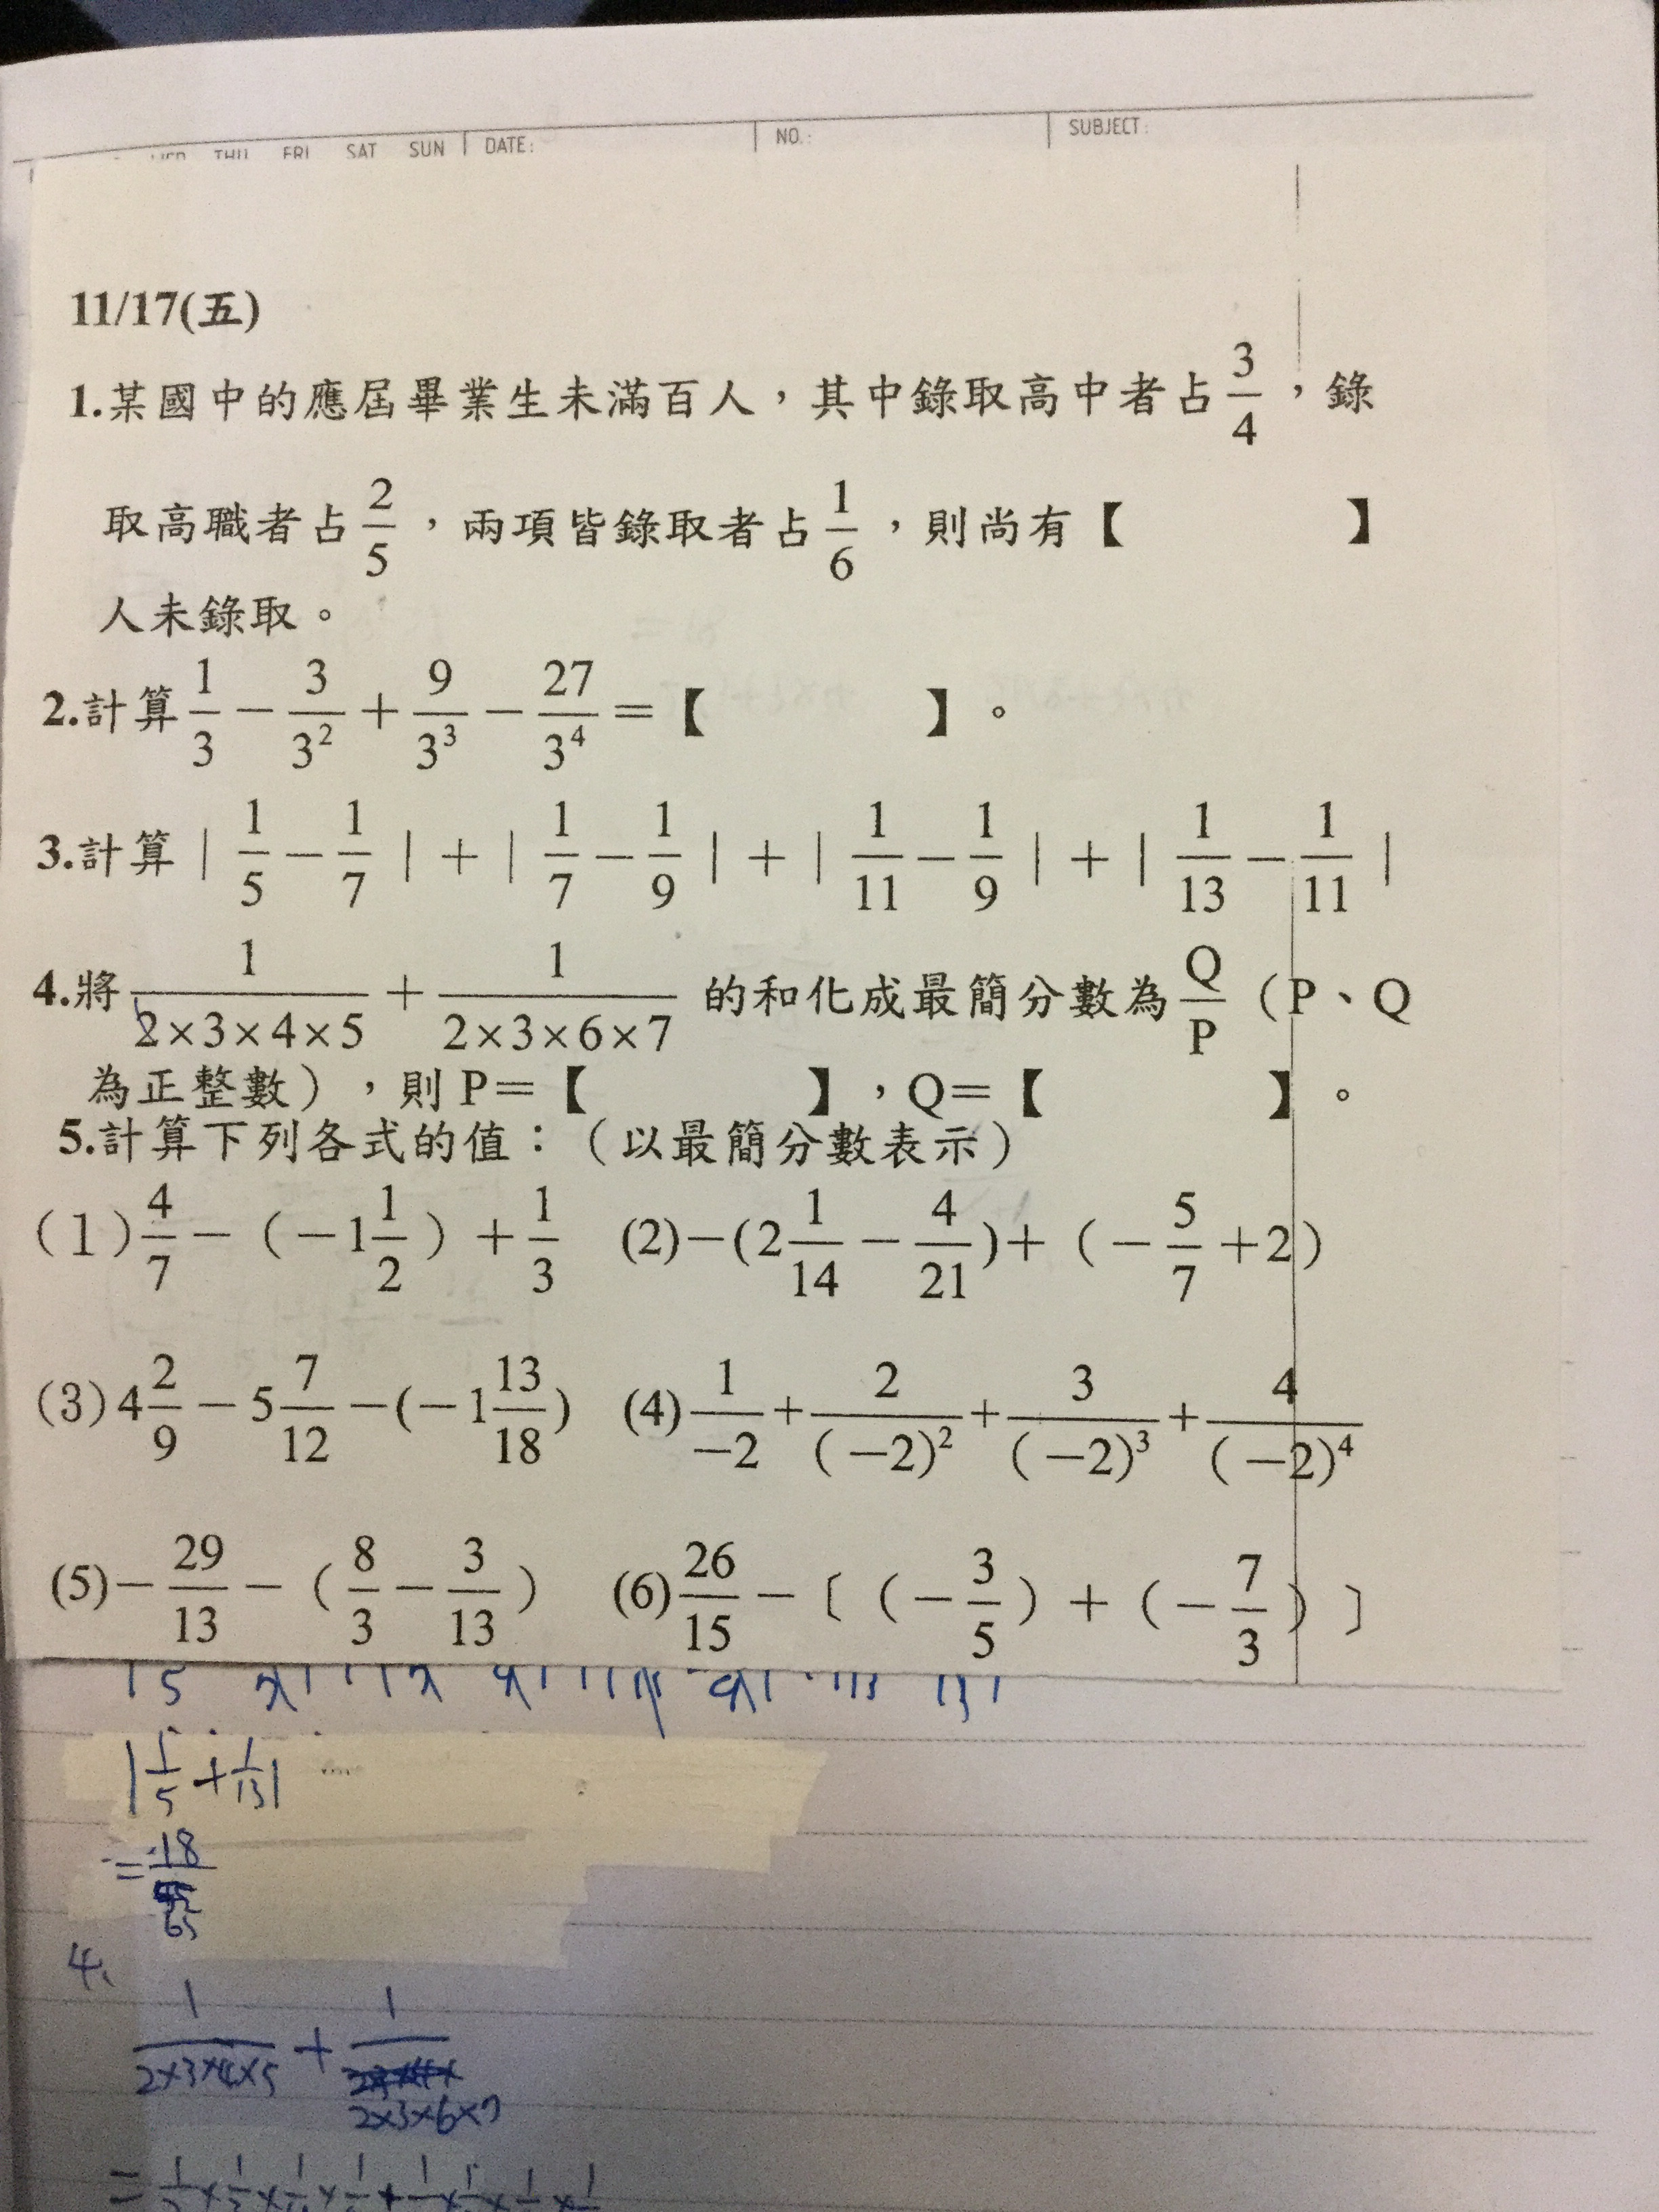 THU FRI SAT SUN DATE: NO.: SUBJECT:
11/17(五)
1.某國中的應屆畢業生未滿百人，其中錄取高中者占3/4，錄
取高職者占2/5，兩項皆錄取者占1/6，則尚有【　　　】
人未錄取。
2.計算1/3－3/3²＋9/3³－27/3⁴＝【　　　】。
3.計算｜1/5－1/7｜＋｜1/7－1/9｜＋｜1/11－1/9｜＋｜1/13－1/11｜
4.將1/(2×3×4×5)＋1/(2×3×6×7)的和化成最簡分數為Q/P（P、Q
為正整數），則P＝【　　　】，Q＝【　　　】。
5.計算下列各式的值：（以最簡分數表示）
(1)4/7－（－1 1/2）＋1/3 (2)－(2 1/14－4/21)＋（－5/7＋2）
(3)4 2/9－5 7/12－(－1 13/18) (4)1/－2＋2/(－2)²＋3/(－2)³＋4/(－2)⁴
(5)－29/13－（8/3－3/13） (6)26/15－〔（－3/5）＋（－7/3）〕
|1/5+1/13|
=18/65
4、
1/(2×3×4×5)+1/(2×3×6×7)